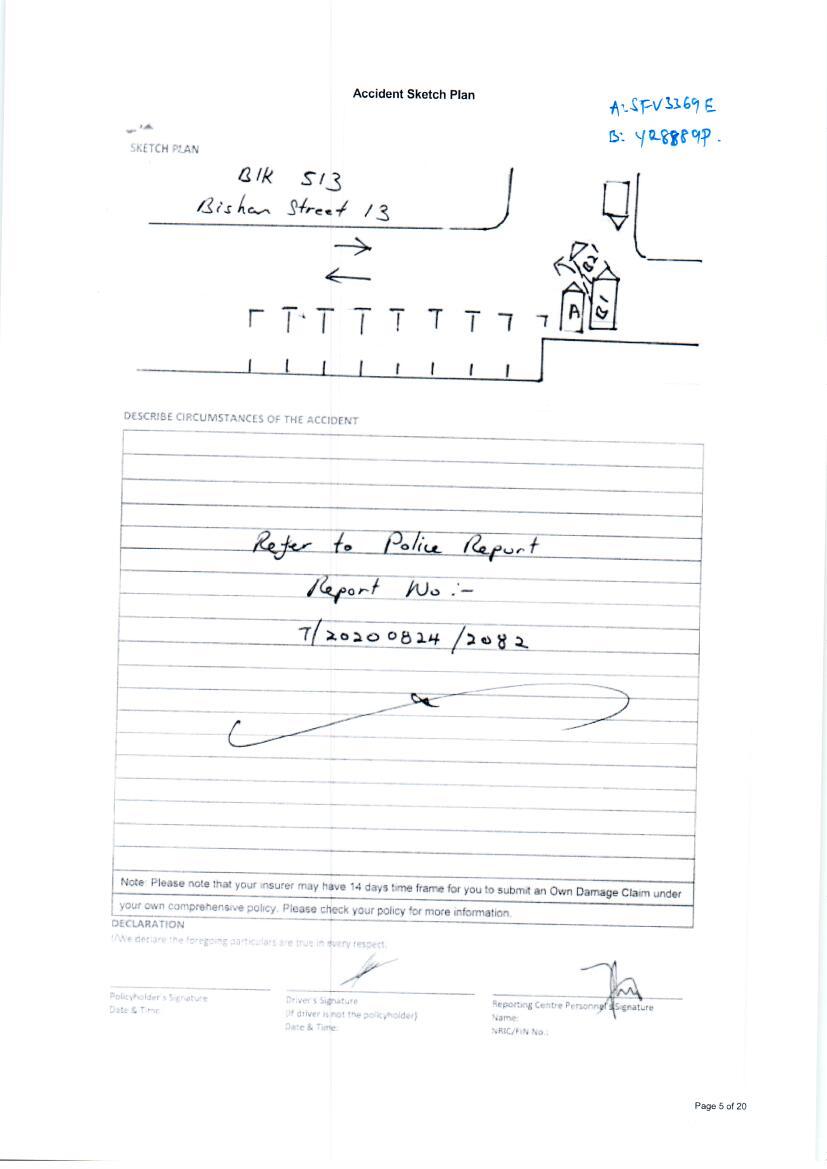 Accident Sketch Plan
A: SFV3369E
B: YQ8889P.
SKETCH PLAN
Blk 513
Bishan Street 13
B2
A
B1
DESCRIBE CIRCUMSTANCES OF THE ACCIDENT
Refer to Police Report
Report No :-
T/20200824/2082
Note: Please note that your insurer may have 14 days time frame for you to submit an Own Damage Claim under
your own comprehensive policy. Please check your policy for more information.
DECLARATION
I/We declare the foregoing particulars are true in every respect.
Policyholder's Signature
Date & Time:
Driver's Signature
(If driver is not the policyholder)
Date & Time:
Reporting Centre Personnel's Signature
Name:
NRIC/FIN No.:
Page 5 of 20